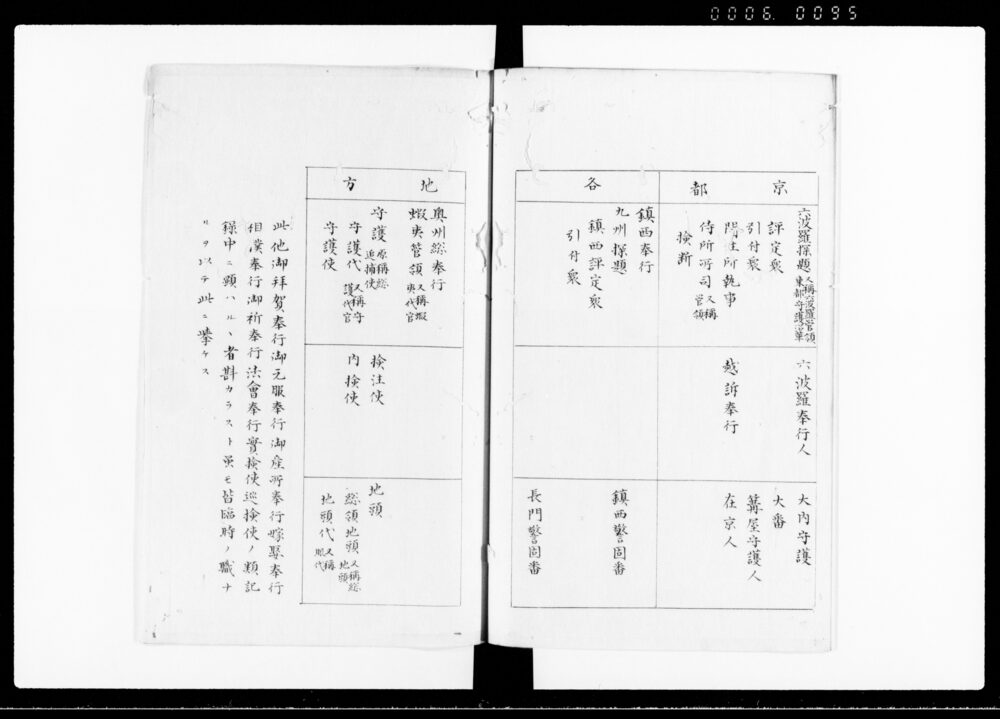 0006.0095
京都
六波羅探題 又稱六波羅管領 東都守護沿革
評定衆
引付衆
問注所執事
侍所所司 又稱管領
檢斷
六波羅奉行人
越訴奉行
大内守護
大番
篝屋守護人
在京人
各
鎮西奉行
九州探題
鎮西評定衆
引付衆
鎮西警固番
長門警固番
地方
奥州総奉行
蝦夷管領 又稱蝦夷代官
守護 原稱総追捕使
守護代 又稱守護代官
守護使
檢注使
内檢使
地頭
総領地頭 又稱総地頭
地頭代 又稱眼代
此他御拜賀奉行御元服奉行御産所奉行嫁娶奉行
相撲奉行御祈奉行法會奉行實檢使巡檢使ノ類記
録中ニ顕ハルヽ者尠カラスト虽モ皆臨時ノ職ナ
リヲ以テ此ニ挙ケス